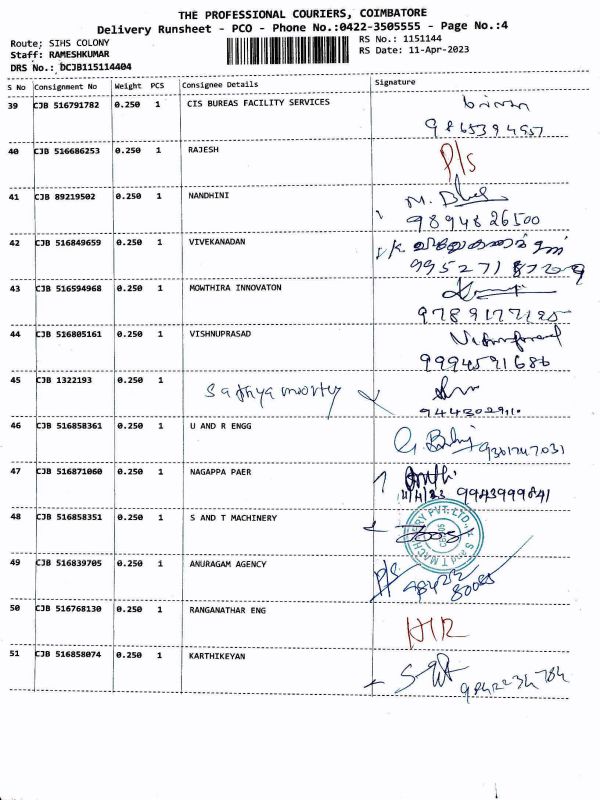 THE PROFESSIONAL COURIERS, COIMBATORE
Delivery Runsheet - PCO - Phone No.:0422-3505555 - Page No.:4
Route; SIHS COLONY
RS No.: 1151144
Staff: RAMESHKUMAR
RS Date: 11-Apr-2023
DRS No.: DCJB115114404
S No Consignment No Weight PCS Consignee Details Signature
39 CJB 516791782 0.250 1 CIS BUREAS FACILITY SERVICES
9865394957
40 CJB 516686253 0.250 1 RAJESH P/S
41 CJB 89219502 0.250 1 NANDHINI
9894826500
42 CJB 516849659 0.250 1 VIVEKANADAN
43 CJB 516594968 0.250 1 MOWTHIRA INNOVATON
9789177125
44 CJB 516805161 0.250 1 VISHNUPRASAD
9994591686
45 CJB 1322193 0.250 1 Sathyamoorty
9443029110
46 CJB 516858361 0.250 1 U AND R ENGG
9361747031
47 CJB 516871060 0.250 1 NAGAPPA PAER
11/4/23 9943999841
48 CJB 516858351 0.250 1 S AND T MACHINERY
S and T MACHINERY PVT. LTD.
49 CJB 516839705 0.250 1 ANURAGAM AGENCY P/S
50 CJB 516768130 0.250 1 RANGANATHAR ENG
51 CJB 516858074 0.250 1 KARTHIKEYAN
9842234784